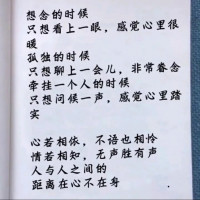 想念的时候
只想看上一眼，感觉心里很
暖
孤独的时候
只想聊上一会儿，非常眷念
牵挂一个人的时候
只想问候一声，感觉心里踏
实
心若相依，不语也相怜
情若相知，无声胜有声
人与人之间的
距离在心不在身